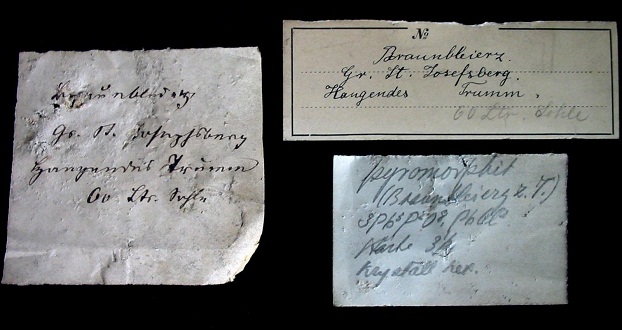 Braunbleierz
Gr. St. Josephsberg
Hangendes Trumm.
60 Ltr. Sohle
No
Braunbleierz.
Gr. St. Josefsberg.
Hangendes Trumm.
60 Ltr. Sohle
Pyromorphit
(Braunbleierz z. T.)
Härte 3½
Krystall hex.